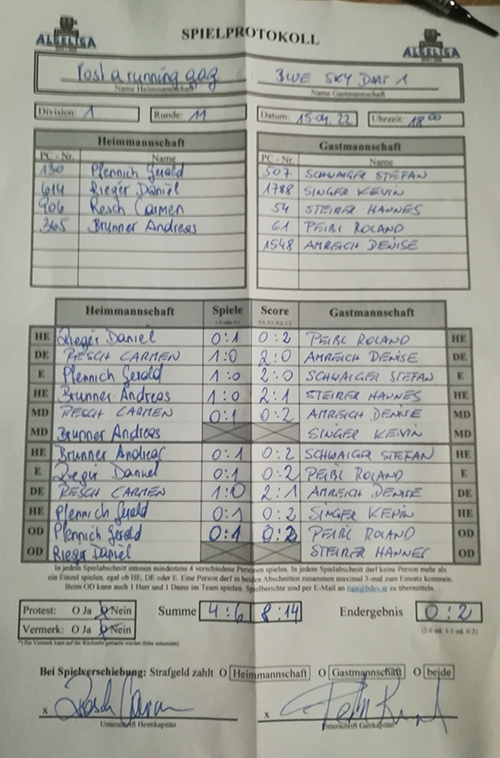 ALSLIGA SPIELPROTOKOLL ALSLIGA
rost a running gag BLUE SKY DART 1
Name Heimmannschaft Name Gastmannschaft
Division: 1 Runde: 11 Datum: 15.04.22 Uhrzeit: 18 00
Heimmannschaft Gastmannschaft
PC - Nr. Name PC - Nr. Name
130 Pfennich Gerald 507 SCHWAIGER STEFAN
614 Rieger Daniel 1788 SINGER KEVIN
906 Resch Carmen 54 STEIRER HANNES
365 Brunner Andreas 61 PEIBL ROLAND
1548 AMREICH DENISE
Heimmannschaft Spiele Score Gastmannschaft
HE Rieger Daniel 0:1 0:2 PEIBL ROLAND HE
DE RESCH CARMEN 1:0 2:0 AMREICH DENISE DE
E Pfennich Gerald 1:0 2:0 SCHWAIGER STEFAN E
HE Brunner Andreas 1:0 2:1 STEIRER HANNES HE
MD RESCH CARMEN 0:1 0:2 AMREICH DENISE MD
MD Brunner Andreas SINGER KEVIN MD
HE Brunner Andreas 0:1 0:2 SCHWAIGER STEFAN HE
E Rieger Daniel 0:1 0:2 PEIBL ROLAND E
DE RESCH CARMEN 1:0 2:1 AMREICH DENISE DE
HE Pfennich Gerald 0:1 0:2 SINGER KEVIN HE
OD Pfennich Gerald 0:1 0:2 PEIBL ROLAND OD
OD Rieger Daniel STEIRER HANNES OD
In jedem Spielabschnitt müssen mindestens 4 verschiedene Personen spielen. In jedem Spielabschnitt darf keine Person mehr als
ein Einzel spielen, egal ob HE, DE oder E. Eine Person darf in beiden Abschnitten zusammen maximal 3-mal zum Einsatz kommen.
Beim OD kann auch 1 Herr und 1 Dame im Team spielen. Spielberichte sind per E-Mail an liga@bdrv.at zu übermitteln.
Protest: O Ja O Nein Summe 4:6 8:14 Endergebnis 0:2
Vermerk: O Ja O Nein (2:0 od. 1:1 od. 0:2)
Bei Spielverschiebung: Strafgeld zahlt O Heimmannschaft O Gastmannschaft O beide
x Resch Carmen x
Unterschrift Heimkapitän Unterschrift Gastkapitän